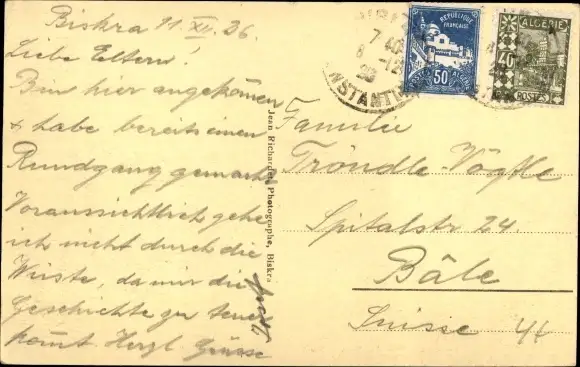 Biskra 11. XII. 26.
Liebe Eltern!
Bin hier angekommen
& habe bereits einen
Rundgang gemacht
Voraussichtlich gehe
ich nicht durch die
Wüste, da mir die
Geschichte zu teuer
kommt. Herzl Grüsse
Jean Richardet, Photographe, Biskra
Familie
Tröndle-Vögtle
Spitalstr 24.
Bâle
Suisse 44
RÉPUBLIQUE
FRANÇAISE
50
ALGÉRIE
ALGÉRIE
40
POSTES
7 40
8 -12
26
NSTANTI